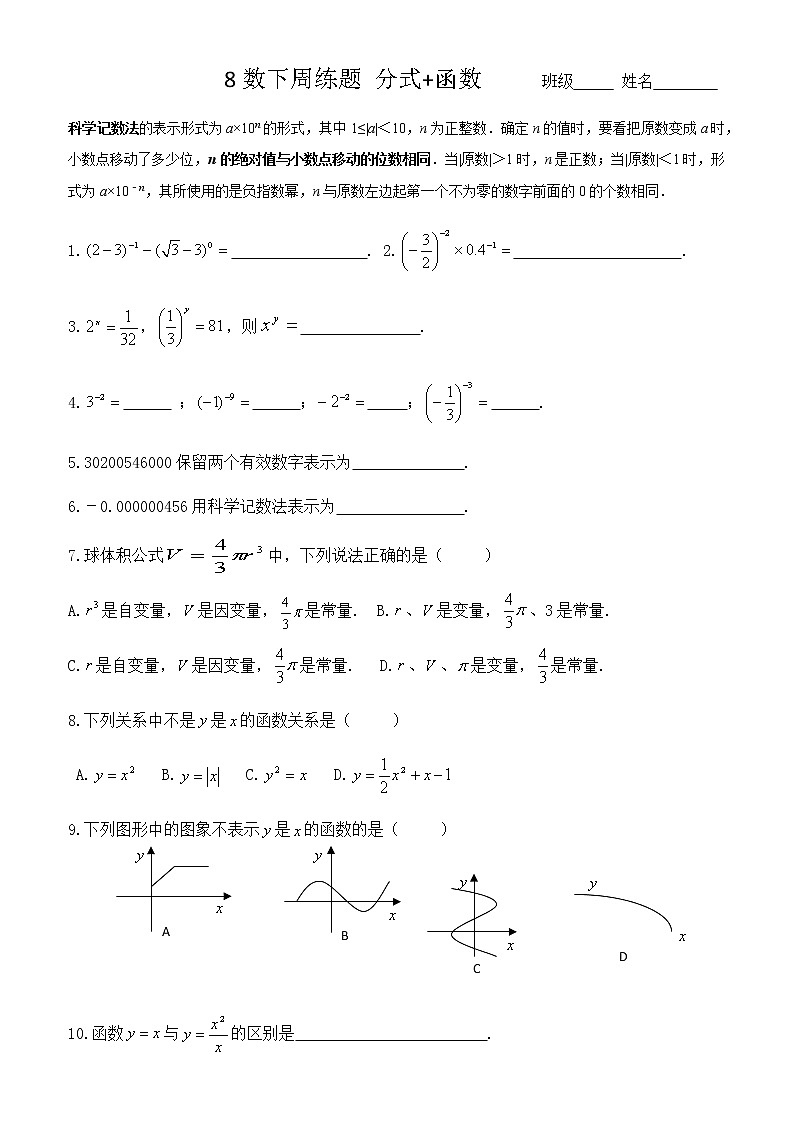 8数下周练题 分式+函数 班级_____ 姓名________
科学记数法的表示形式为 a×10ⁿ的形式，其中 1≤|a|＜10，n 为正整数．确定 n 的值时，要看把原数变成 a 时，
小数点移动了多少位，n 的绝对值与小数点移动的位数相同．当|原数|＞1 时，n 是正数；当|原数|＜1 时，形
式为 a×10﹣ⁿ，其所使用的是负指数幂，n 与原数左边起第一个不为零的数字前面的 0 的个数相同．
1. (2−3)⁻¹−(√3−3)⁰=_________________. 2. (−3/2)⁻²×0.4⁻¹=_____________________.
3. 2ⁿ=1/32，(1/3)^y=81，则 x^y=_______________.
4. 3⁻²=______ ；(−1)⁻⁹=______；−2⁻²=_____；(−1/3)⁻³=______.
5.30200546000 保留两个有效数字表示为______________.
6.－0.000000456 用科学记数法表示为________________.
7.球体积公式 V=4/3 πr³ 中，下列说法正确的是（ ）
A. r³是自变量，V 是因变量，4/3 π是常量. B. r、V 是变量，4/3 π、3 是常量.
C. r 是自变量，V 是因变量，4/3 π是常量. D. r、V、π是变量，4/3 是常量.
8.下列关系中不是 y 是 x 的函数关系是（ ）
A. y=x² B. y=|x| C. y²=x D. y=1/2 x²+x−1
9.下列图形中的图象不表示 y 是 x 的函数的是（ ）
y x A
y x B
y x C
y x D
10.函数 y=x 与 y=x²/x 的区别是________________________.